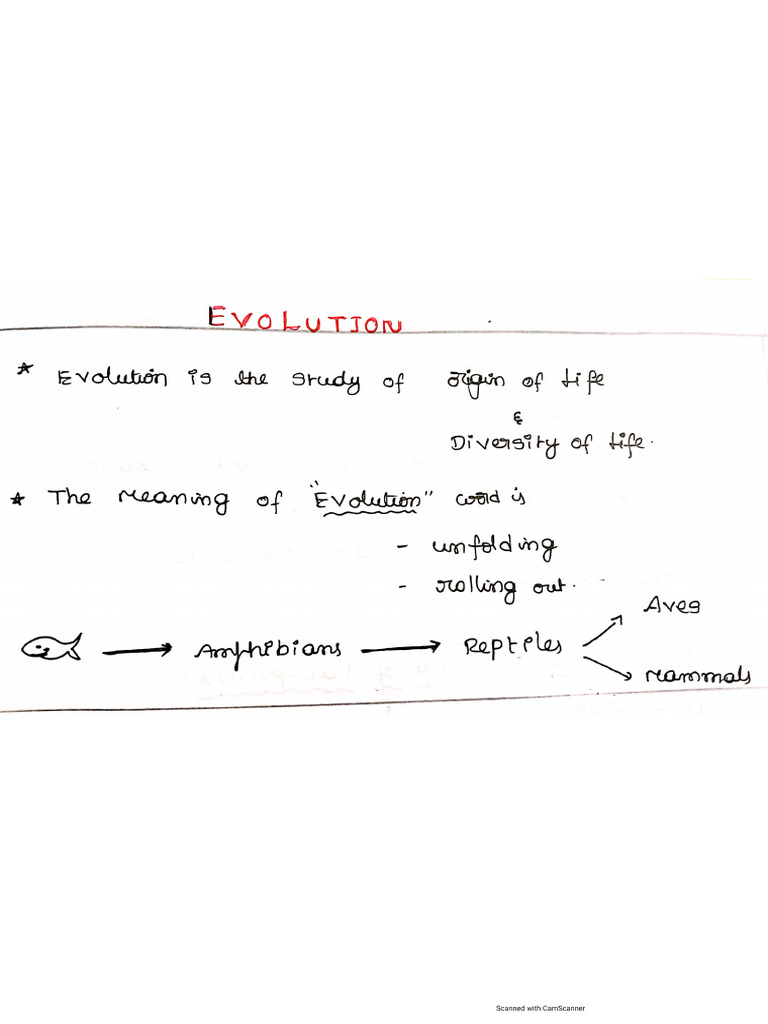 EVOLUTION
* Evolution is the study of origin of life
&
Diversity of life.
* The meaning of "Evolution" word is
- unfolding
- rolling out.
Aves
→ Amphibians → Reptiles
mammals
Scanned with CamScanner